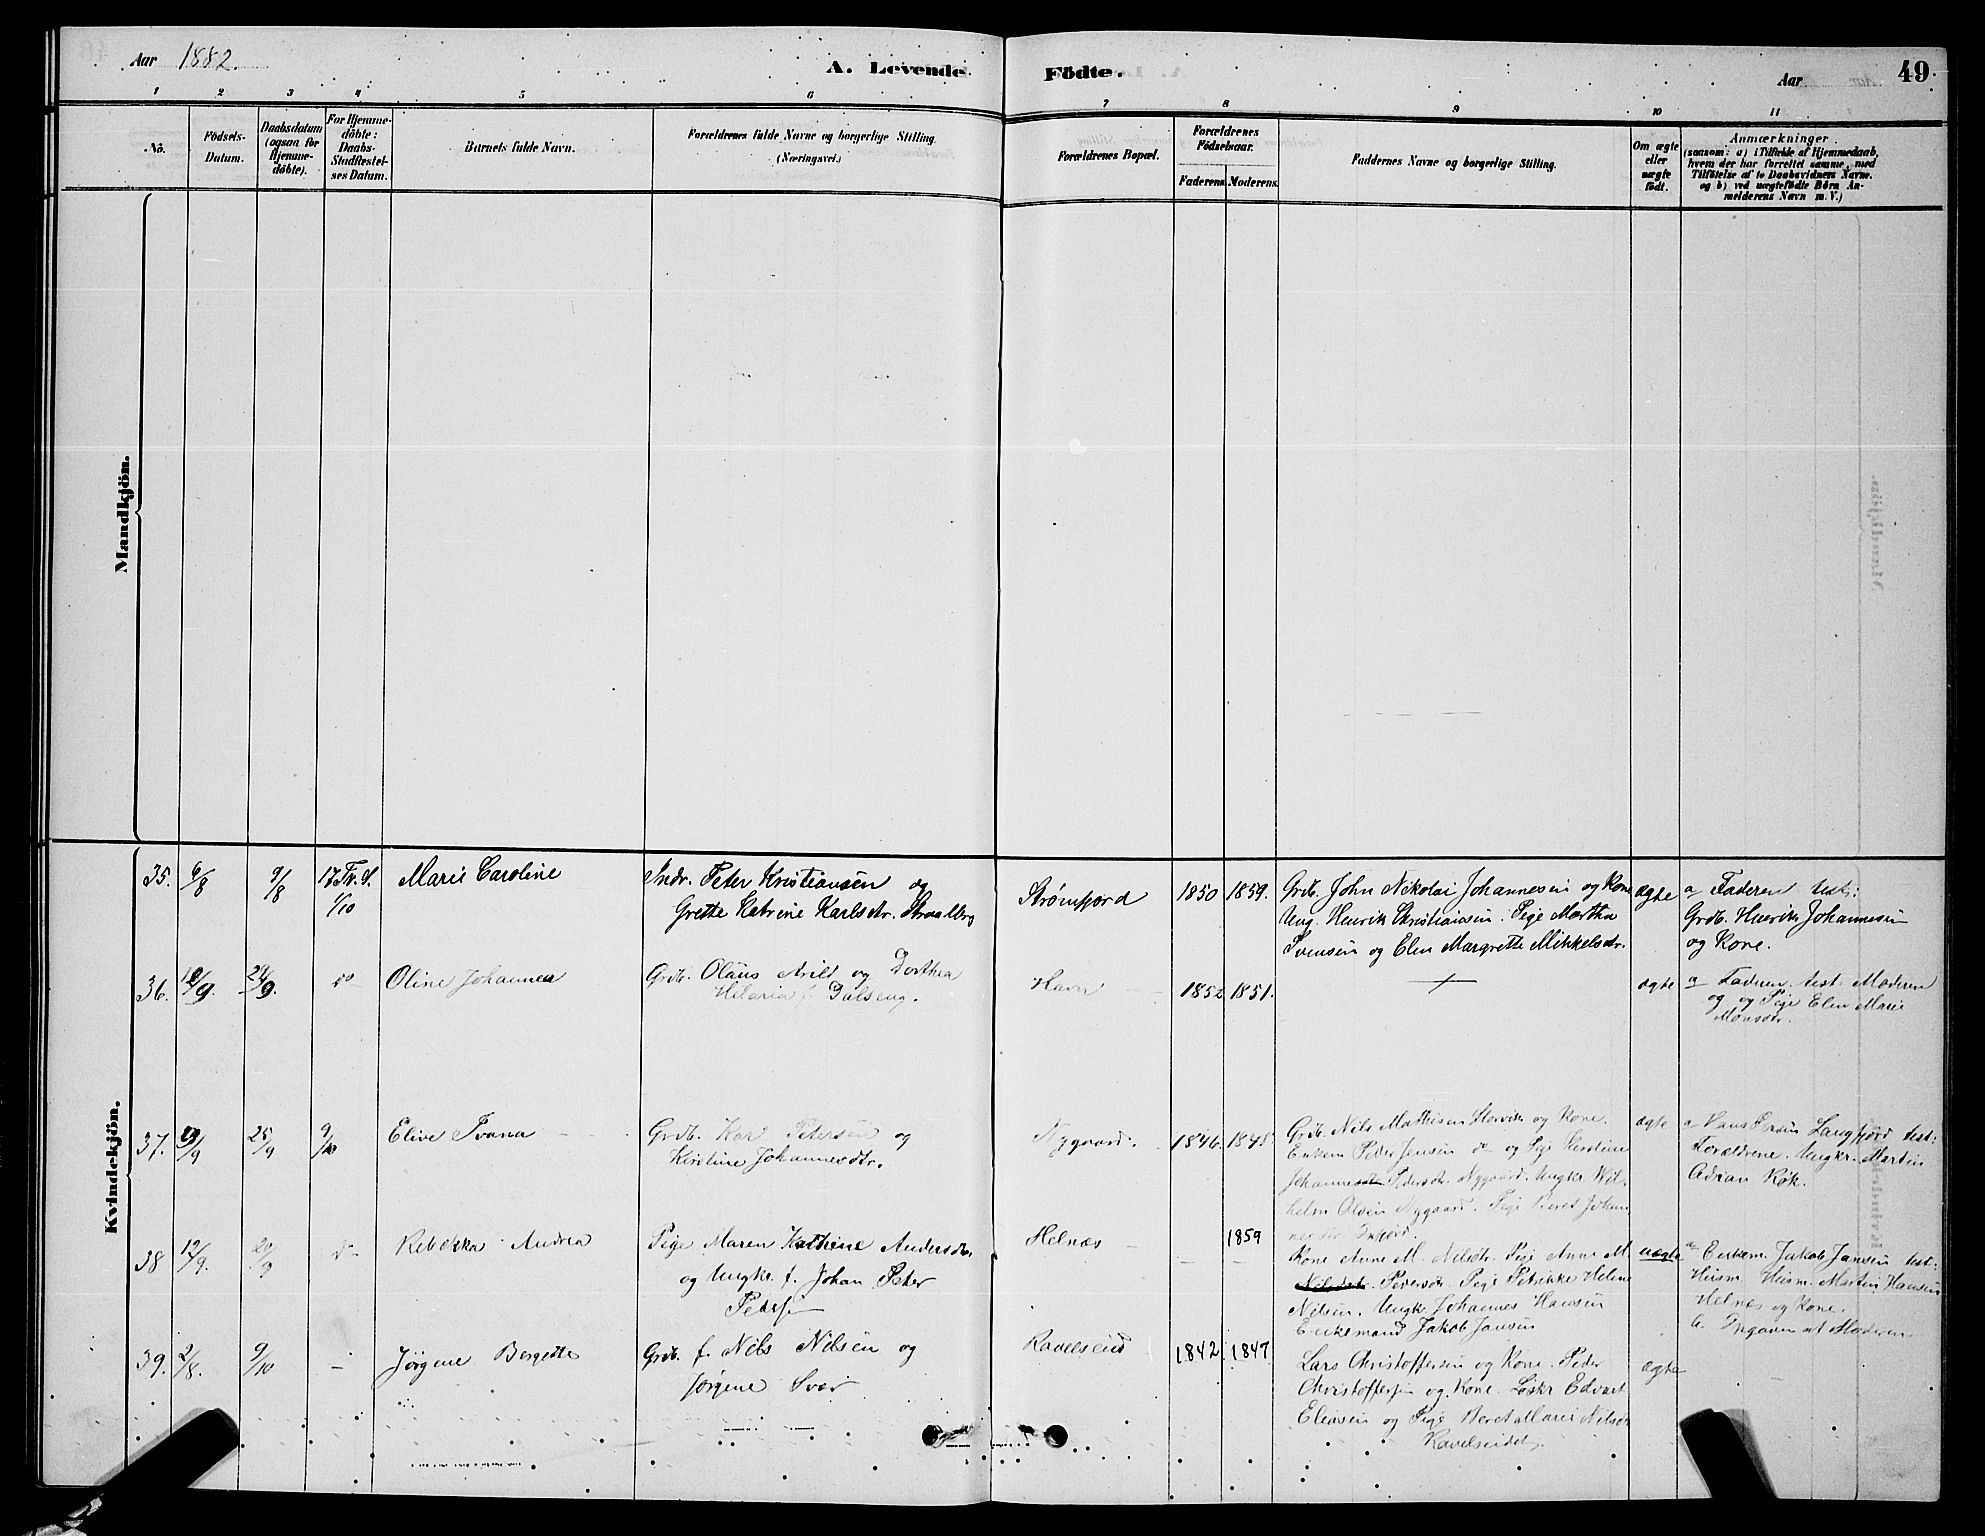 Aar 1882.
A. Levende
Födte.
Aar
49
1 2 3 4 5 6 7 8 9 10 11
No.
Födsels-
Datum.
Daabsdatum
(ogsaa for
Hjemme-
döbte).
For Hjemme-
döbte:
Daabs-
Stadfæstel-
ses Datum.
Barnets fulde Navn.
Forældrenes fulde Navne og borgerlige Stilling.
(Næringsvei.)
Forældrenes Bopæl.
Forældrenes
Födselsaar.
Faderens. Moderens.
Faddernes Navne og borgerlige Stilling.
Om ægte
eller
uægte
födt.
Anmærkninger
(saasom: a) i Tilfælde af Hjemmedaab,
hvem der har forrettet samme, med
Tilföielse af to Daabsvidners Navne.
og b) ved uægtefödte Börn An-
melderens Navn m. V.)
Mandkjön.
Kvindekjön.
35. 6/8 9/8 17 Tr. S. 1/10
Marie Caroline
Indr. Peter Kristiansen og
Grethe Katrine Karlsdtr. Straalberg
Strømfjord
1850 1859.
Grdb. John Nikolai Johannesen og Kone
Ung. Henrik Christiansen. Pige Martha
Svensen og Elen Margrette Mikkelsdtr.
ægte
a Faderen test:
Grdb. Henrik Johannesen
og Kone.
36. 24/9. do
Oline Johannea
Grdb. Olaus Arild og Dorthea
Hilaria f. Dalseng.
Havn
1852 1851.
ægte
a Faderen test: Moderen
og og Pige Elen Marie
Monsdtr.
37. 9/9 25/9 9/10
Elive Ivana
Grdb. Karl Petersen og
Kirstine Johannesdtr.
Nygaard.
1846. 1845.
Grdb. Nils Mathisen Storvik og Kone.
Enkem Peder Jensen do og Pige Kirstine
Pedersdtr. Nygaard. Ungkr. Wil-
helm Olsen Nygaard. Pige Beret Johan
ægte
a Hans Langfjord test:
Forældrene. Ungkr. Martin
Adrian Røk.
38 12/9. 20/9 do
Rebekka Andrea
Pige Maren Kathrine Andersdtr.
og Ungkr. f. Johan Peter
Petersen
Helnæs
1859
Kone Anne M. Nilsdtr. Pige Anne M.
Nilsdtr. Pedersdtr. Pige Petrikke Helene
Nilsen. Ungkr. Johannes Hansen
Enkemand Jakob Jansen
uægte
a Enkem. Jakob Jansen test:
Husm. Martin Hansen
Helnæs og Kone.
b. Opgaven af Moderen.
39. 2/8. 9/10 –
Jørgine Bergette
Grdb. f. Nils Nilsen og
Jørgine Svær
Ravelseid
1842. 1847
Lars Christoffersen og Kone. Peder
Christoffersen og Kone. Løskr Edvart
Eliasen og Pige Beret Marie Nilsdtr
Ravelseidet.
ægte